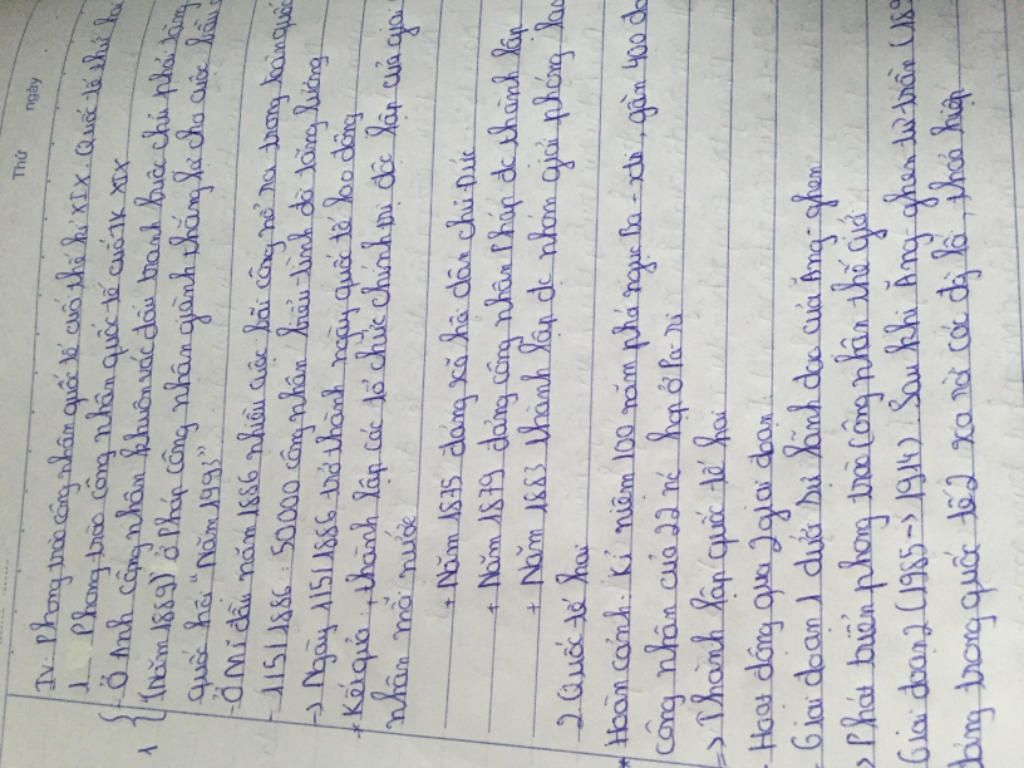 Thứ ngày
IV. Phong trào công nhân quốc tế cuối thế kỉ XIX. Quốc tế thứ ha
1. Phong trào công nhân quốc tế cuối TK XIX
- Ở Anh công nhân khuân vác đấu tranh buộc chủ phải tăng
1 (năm 1889) Ở Pháp công nhân giành thắng lợi cho cuộc bầu
quốc hội "Năm 1993"
- Ở Mĩ đầu năm 1886 nhiều cuộc bãi công nổ ra trong toàn quốc
- 1/5/1886: 50000 công nhân biểu tình đò tăng lương
-> Ngày 1/5/1886 trở thành ngày quốc tế lao động
* Kết quả: thành lập các tổ chức chính trị độc lập của gia
nhân mỗi nước
+ Năm 1875 đảng xã hội dân chủ Đức
+ Năm 1879 đảng công nhân Pháp đc thành lập
+ Năm 1883 thành lập đc nhóm giải phóng lao
- 2 Quốc tế hai
* Hoàn cảnh: Kỉ niệm 100 năm phá ngục Ba-xti, gần 400 đạ
Công nhân của 22 nc họp ở Pa ri
=> Thành lập quốc tế hai
- Hoạt động qua 2 giai đoạn
- Giai đoạn 1 dưới sự lãnh đạo của Ăng-ghen
> Phát triển phong trào công nhân thế giới
Giai đoạn 2 (1985 -> 1914) Sau khi Ăng-ghen từ trần (189
đảng trong quốc tế 2 xa rời các đg lối, thoả hiệp